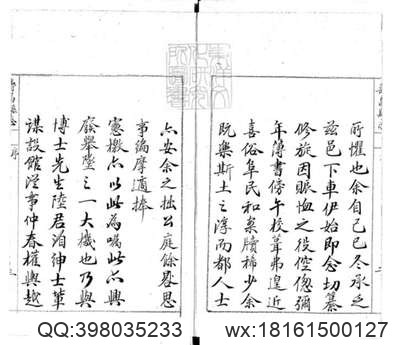 所懼也余自己巳冬承乏
茲邑下車伊始即念切纂
修旋因賑恤之役倥偬彌
年簿書傍午校葺弗遑近
喜俗阜民和案牘稀少余
既樂斯土之淳而都人士
亦安余之拙公庭餘晷思
事編摩適捧
憲檄亦以此為囑此亦興
廢舉墜之一大機也乃與
博士先生陸君洎紳士輩
謀設館從事仲春權輿越
QQ:398035233
wx:18161500127